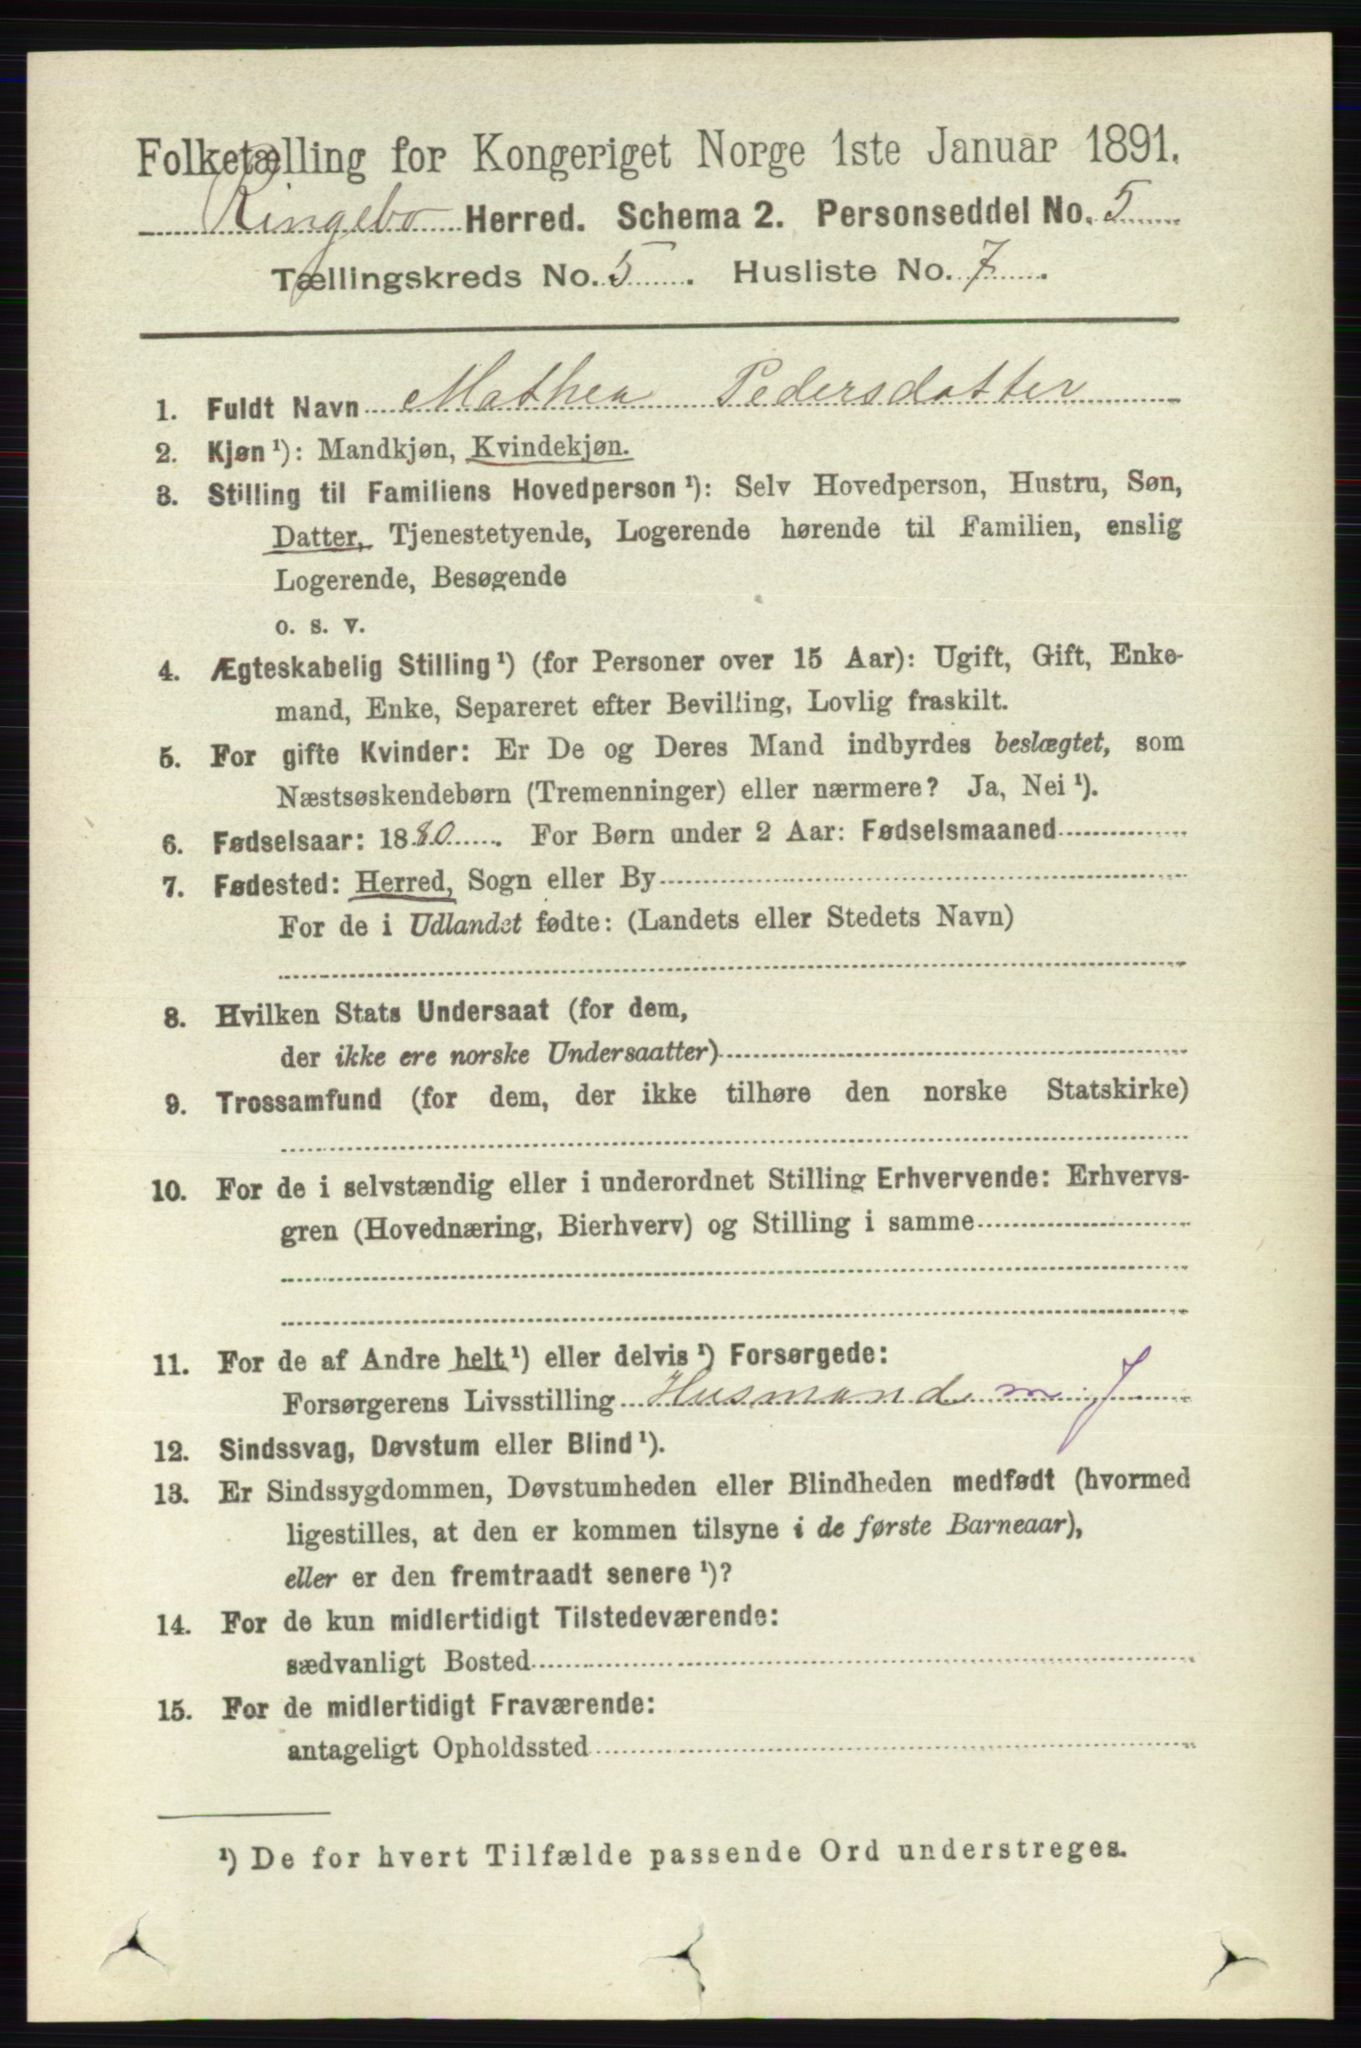 Folketælling for Kongeriget Norge 1ste Januar 1891.
Ringebo Herred. Schema 2. Personseddel No. 5
Tællingskreds No. 5. Husliste No. 7.
1. Fuldt Navn Mathea Pedersdatter
2. Kjøn¹): Mandkjøn, Kvindekjøn.
3. Stilling til Familiens Hovedperson¹): Selv Hovedperson, Hustru, Søn,
Datter, Tjenestetyende, Logerende hørende til Familien, enslig
Logerende, Besøgende
o. s. v.
4. Ægteskabelig Stilling¹) (for Personer over 15 Aar): Ugift, Gift, Enke-
mand, Enke, Separeret efter Bevilling, Lovlig fraskilt.
5. For gifte Kvinder: Er De og Deres Mand indbyrdes beslægtet, som
Næstsøskendebørn (Tremenninger) eller nærmere? Ja, Nei¹).
6. Fødselsaar: 1880. For Børn under 2 Aar: Fødselsmaaned
7. Fødested: Herred, Sogn eller By
For de i Udlandet fødte: (Landets eller Stedets Navn)
8. Hvilken Stats Undersaat (for dem,
der ikke ere norske Undersaatter)
9. Trossamfund (for dem, der ikke tilhøre den norske Statskirke)
10. For de i selvstændig eller i underordnet Stilling Erhvervende: Erhvervs-
gren (Hovednæring, Bierhverv) og Stilling i samme
11. For de af Andre helt¹) eller delvis¹) Forsørgede:
Forsørgerens Livsstilling Husmand m. J
12. Sindssvag, Døvstum eller Blind¹).
13. Er Sindssygdommen, Døvstumheden eller Blindheden medfødt (hvormed
ligestilles, at den er kommen tilsyne i de første Barneaar),
eller er den fremtraadt senere¹)?
14. For de kun midlertidigt Tilstedeværende:
sædvanligt Bosted
15. For de midlertidigt Fraværende:
antageligt Opholdssted
¹) De for hvert Tilfælde passende Ord understreges.